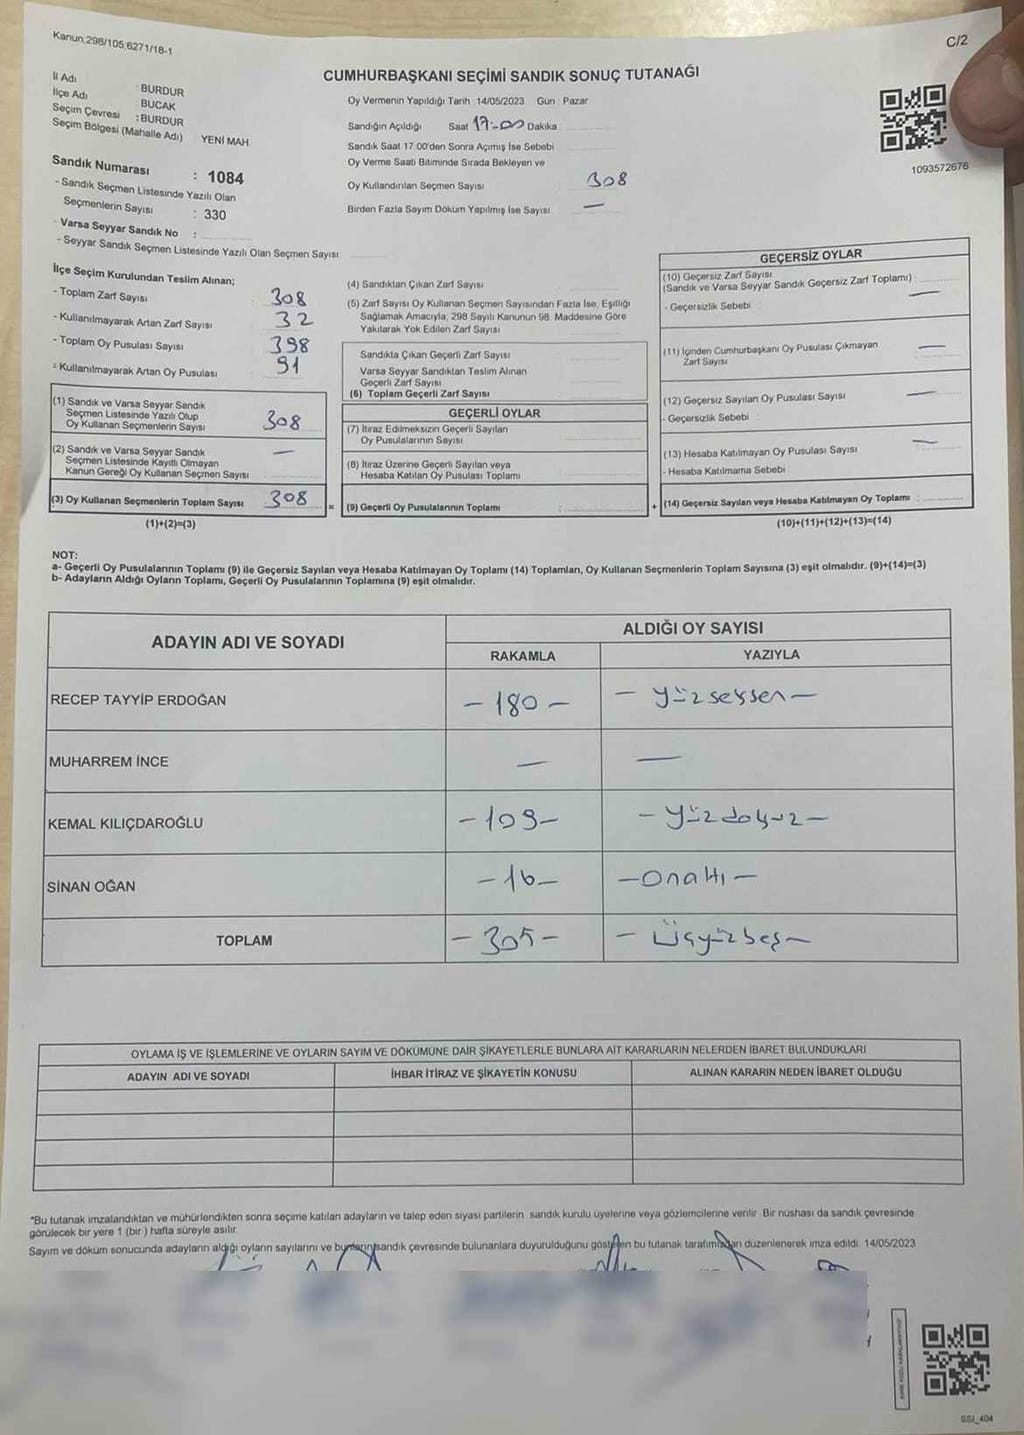 Kanun;298/105;6271/18-1
C/2
CUMHURBAŞKANI SEÇİMİ SANDIK SONUÇ TUTANAĞI
İl Adı : BURDUR
İlçe Adı : BUCAK
Seçim Çevresi : BURDUR
Seçim Bölgesi (Mahalle Adı) YENİ MAH.
Sandık Numarası : 1084
- Sandık Seçmen Listesinde Yazılı Olan
Seçmenlerin Sayısı : 330
Varsa Seyyar Sandık No :
- Seyyar Sandık Seçmen Listesinde Yazılı Olan Seçmen Sayısı
Oy Vermenin Yapıldığı Tarih : 14/05/2023 Gün : Pazar
Sandığın Açıldığı Saat 17-00 Dakika
Sandık Saat 17:00'den Sonra Açımış İse Sebebi
Oy Verme Saati Bitiminde Sırada Bekleyen ve
Oy Kullandırılan Seçmen Sayısı 308
Birden Fazla Sayım Döküm Yapılmış İse Sayısı —
1093572676
İlçe Seçim Kurulundan Teslim Alınan;
- Toplam Zarf Sayısı 308
- Kullanılmayarak Artan Zarf Sayısı 32
- Toplam Oy Pusulası Sayısı 398
- Kullanılmayarak Artan Oy Pusulası 91
(1) Sandık ve Varsa Seyyar Sandık
Seçmen Listesinde Yazılı Olup
Oy Kullanan Seçmenlerin Sayısı 308
(2) Sandık ve Varsa Seyyar Sandık
Seçmen Listesinde Kayıtlı Olmayan
Kanun Gereği Oy Kullanan Seçmen Sayısı —
(3) Oy Kullanan Seçmenlerin Toplam Sayısı 308 =
(1)+(2)=(3)
(4) Sandıktan Çıkan Zarf Sayısı
(5) Zarf Sayısı Oy Kullanan Seçmen Sayısından Fazla İse, Eşitliği
Sağlamak Amacıyla, 298 Sayılı Kanunun 98. Maddesine Göre
Yakılarak Yok Edilen Zarf Sayısı
Sandıkta Çıkan Geçerli Zarf Sayısı
Varsa Seyyar Sandıktan Teslim Alınan
Geçerli Zarf Sayısı
(6) Toplam Geçerli Zarf Sayısı
GEÇERLİ OYLAR
(7) İtiraz Edilmeksizin Geçerli Sayılan
Oy Pusulalarının Sayısı
(8) İtiraz Üzerine Geçerli Sayılan veya
Hesaba Katılan Oy Pusulası Toplamı
(9) Geçerli Oy Pusulalarının Toplamı : +
GEÇERSİZ OYLAR
(10) Geçersiz Zarf Sayısı
(Sandık ve Varsa Seyyar Sandık Geçersiz Zarf Toplamı) : —
- Geçersizlik Sebebi
(11) İçinden Cumhurbaşkanı Oy Pusulası Çıkmayan
Zarf Sayısı —
(12) Geçersiz Sayılan Oy Pusulası Sayısı —
- Geçersizlik Sebebi :
(13) Hesaba Katılmayan Oy Pusulası Sayısı —
- Hesaba Katılmama Sebebi
(14) Geçersiz Sayılan veya Hesaba Katılmayan Oy Toplamı :
(10)+(11)+(12)+(13)=(14)
NOT:
a- Geçerli Oy Pusulalarının Toplamı (9) ile Geçersiz Sayılan veya Hesaba Katılmayan Oy Toplamı (14) Toplamları, Oy Kullanan Seçmenlerin Toplam Sayısına (3) eşit olmalıdır. (9)+(14)=(3)
b- Adayların Aldığı Oyların Toplamı, Geçerli Oy Pusulalarının Toplamına (9) eşit olmalıdır.
ADAYIN ADI VE SOYADI ALDIĞI OY SAYISI
RAKAMLA YAZIYLA
RECEP TAYYİP ERDOĞAN -180- -yüzseksen-
MUHARREM İNCE — —
KEMAL KILIÇDAROĞLU -109- -yüzdokuz-
SİNAN OĞAN -16- -onaltı-
TOPLAM -305- -üçyüzbeş-
OYLAMA İŞ VE İŞLEMLERİNE VE OYLARIN SAYIM VE DÖKÜMÜNE DAİR ŞİKAYETLERLE BUNLARA AİT KARARLARIN NELERDEN İBARET BULUNDUKLARI
ADAYIN ADI VE SOYADI İHBAR İTİRAZ VE ŞİKAYETİN KONUSU ALINAN KARARIN NEDEN İBARET OLDUĞU
*Bu tutanak imzalandıktan ve mühürlendikten sonra seçime katılan adayların ve talep eden siyasi partilerin sandık kurulu üyelerine veya gözlemcilerine verilir. Bir nüshası da sandık çevresinde
görülecek bir yere 1 (bir ) hafta süreyle asılır.
Sayım ve döküm sonucunda adayların aldığı oyların sayılarını ve bunların sandık çevresinde bulunanlara duyurulduğunu gösteren bu tutanak tarafımızdan düzenlenerek imza edildi. 14/05/2023
SSI_404